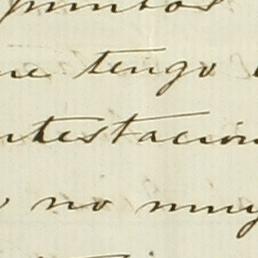 puntos
ue tengo
ntestacion
no muy